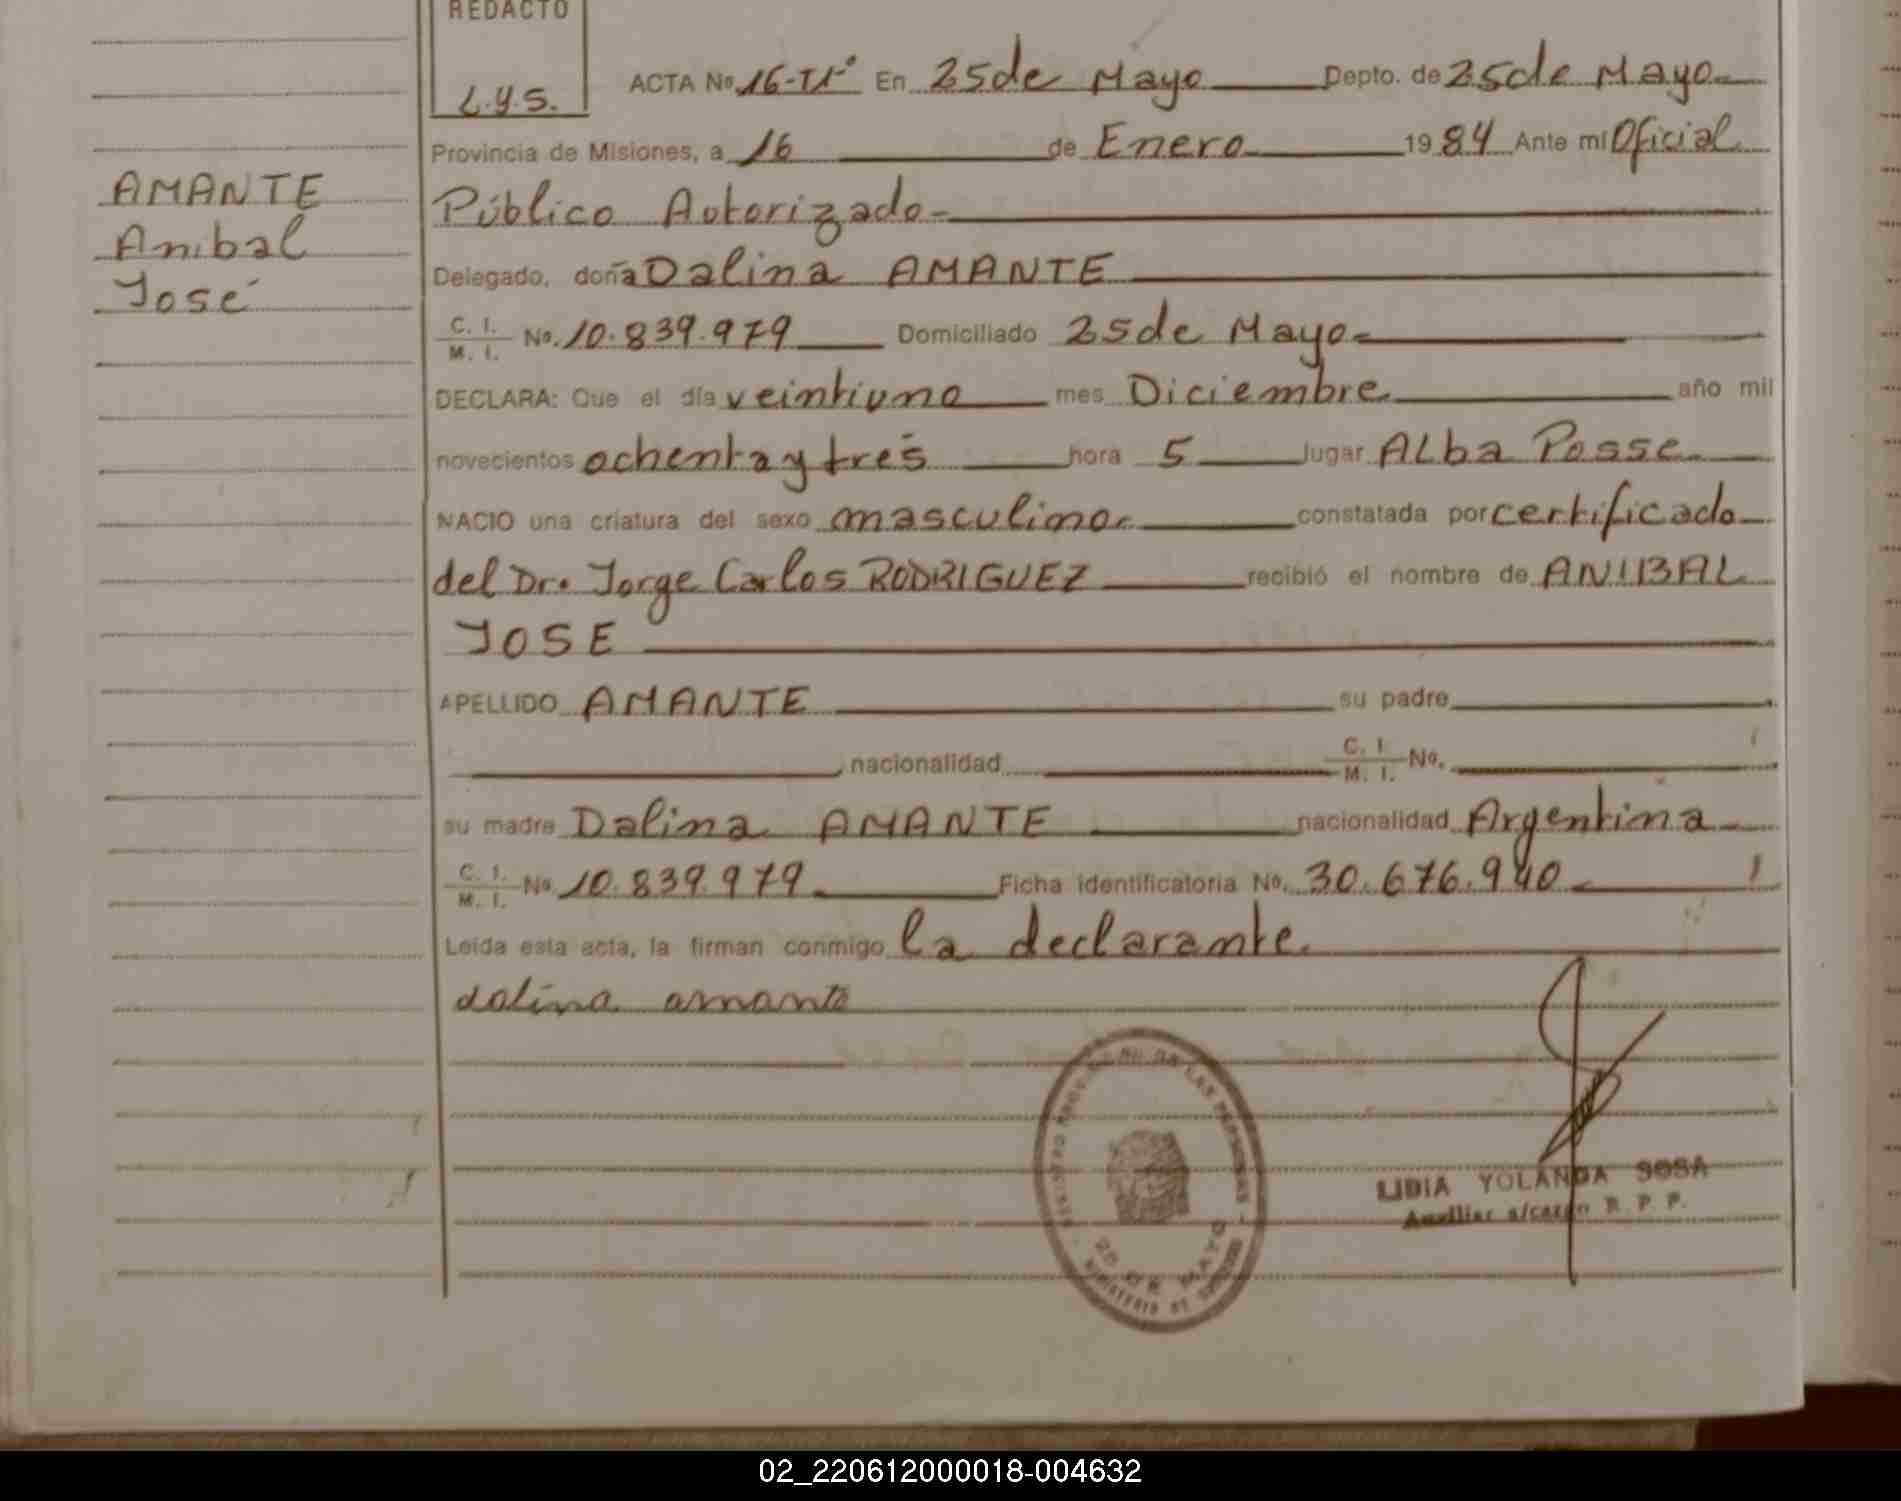 REDACTO
L.y.S.
ACTA No. 16-T1-° En 25 de Mayo Depto. de 25 de Mayo
Provincia de Misiones, a 16 de Enero 1984 Ante mi Oficial
Público Autorizado
Delegado, doña Dalina AMANTE
C. I. / M. I. No. 10.839.979 Domiciliado 25 de Mayo
DECLARA: Que el día veintiuno mes Diciembre año mil
novecientos ochenta y tres hora 5 lugar Alba Posse
NACIO una criatura del sexo masculino constatada por certificado
del Dr. Jorge Carlos RODRIGUEZ recibió el nombre de ANIBAL
JOSE
APELLIDO AMANTE su padre
nacionalidad C. I. / M. I. No.
su madre Dalina AMANTE nacionalidad Argentina
C. I. / M. I. No. 10.839.979 Ficha identificatoria No. 30.676.940
Leída esta acta, la firman conmigo la declarante.
dalina amante
AMANTE
Anibal
José
25 DE MAYO
MINISTERIO DE GOBIERNO
LIDIA YOLANDA SOSA
Auxiliar a/cargo R. P. P.
02_220612000018-004632